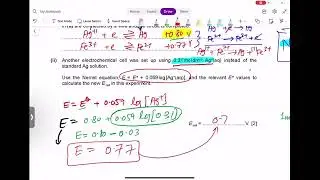 Ag⁺ + e ⇌ Ag +0.80 V
Fe³⁺ + e ⇌ Fe²⁺ +0.77 V
(ii) Another electrochemical cell was set up using 0.31 mol dm⁻³ Ag⁺(aq) instead of the
standard Ag⁺ solution.
Use the Nernst equation, E = E° + 0.059 log[Ag⁺(aq)], and the relevant E° values to
calculate the new E in this experiment.
E = E° + 0.059 log [Ag⁺]
E = 0.80 + 0.059 log[0.31]
E = 0.80 - 0.03
E = 0.77
E = 0.7 V [2]